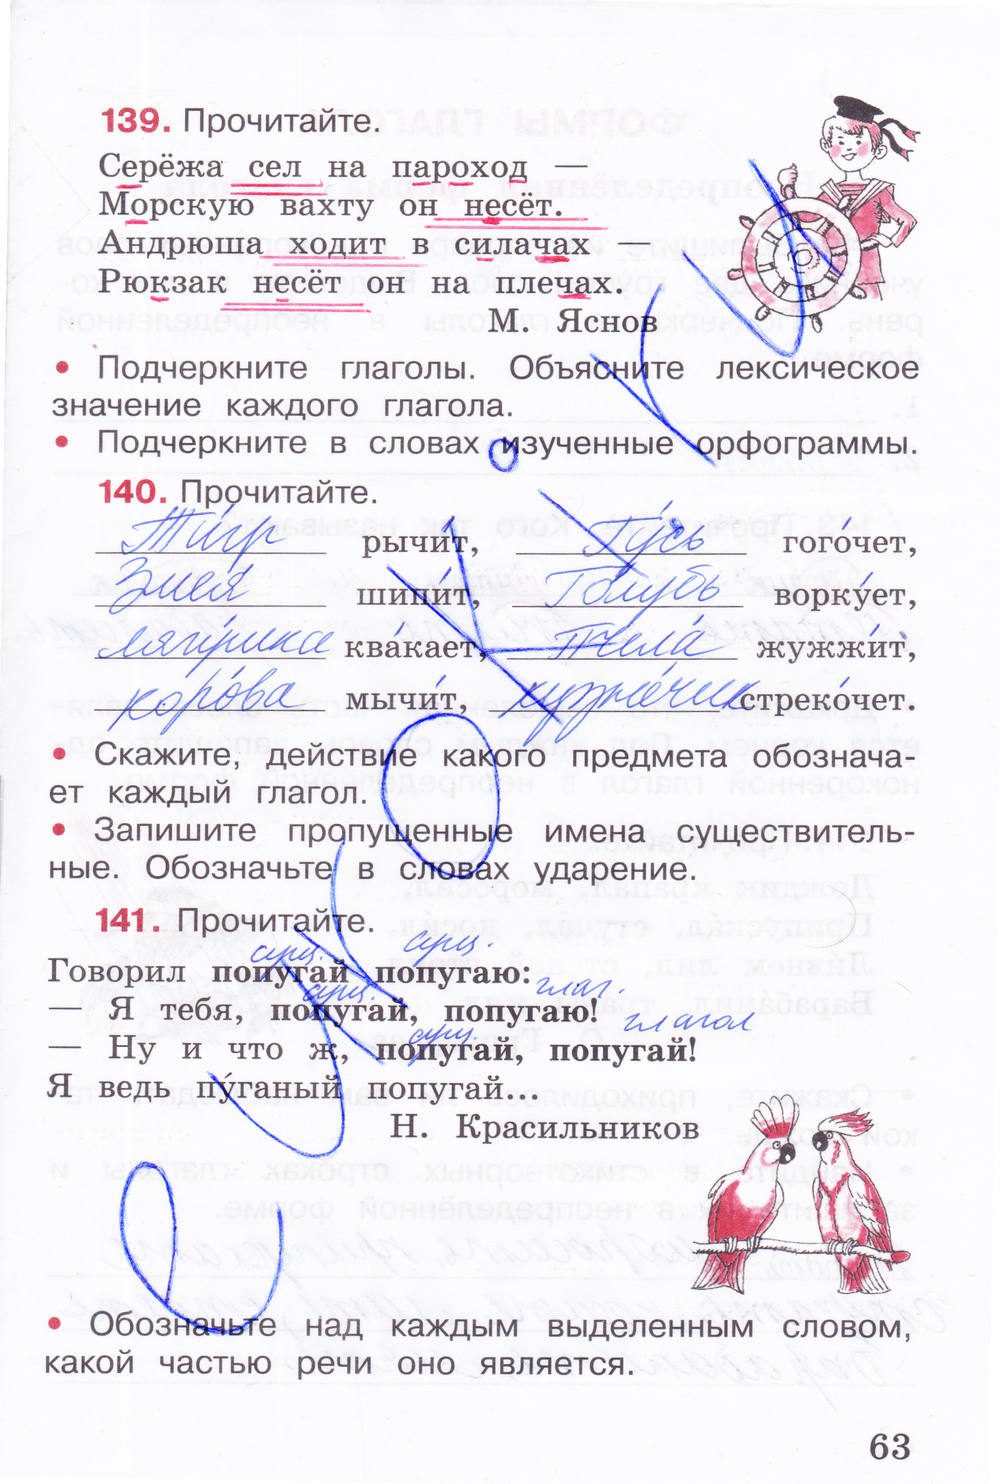 139. Прочитайте.
Серёжа сел на пароход —
Морскую вахту он несёт.
Андрюша ходит в силачах —
Рюкзак несёт он на плечах.
М. Яснов
• Подчеркните глаголы. Объясните лексическое
значение каждого глагола.
• Подчеркните в словах изученные орфограммы.
140. Прочитайте.
Ти́гр рычи́т, Гу́сь гого́чет,
Змея́ шипи́т, Го́лубь ворку́ет,
лягу́шка ква́кает, Пчела́ жужжи́т,
коро́ва мычи́т, кузне́чик стреко́чет.
• Скажите, действие какого предмета обознача-
ет каждый глагол.
• Запишите пропущенные имена существитель-
ные. Обозначьте в словах ударение.
141 Прочитайте.
сущ. сущ.
Говорил попугай попугаю:
сущ. глаг.
— Я тебя, попугай, попугаю!
сущ. глагол
— Ну и что ж, попугай, попугай!
Я ведь пу́ганый попугай...
Н. Красильников
• Обозначьте над каждым выделенным словом,
какой частью речи оно является.
63